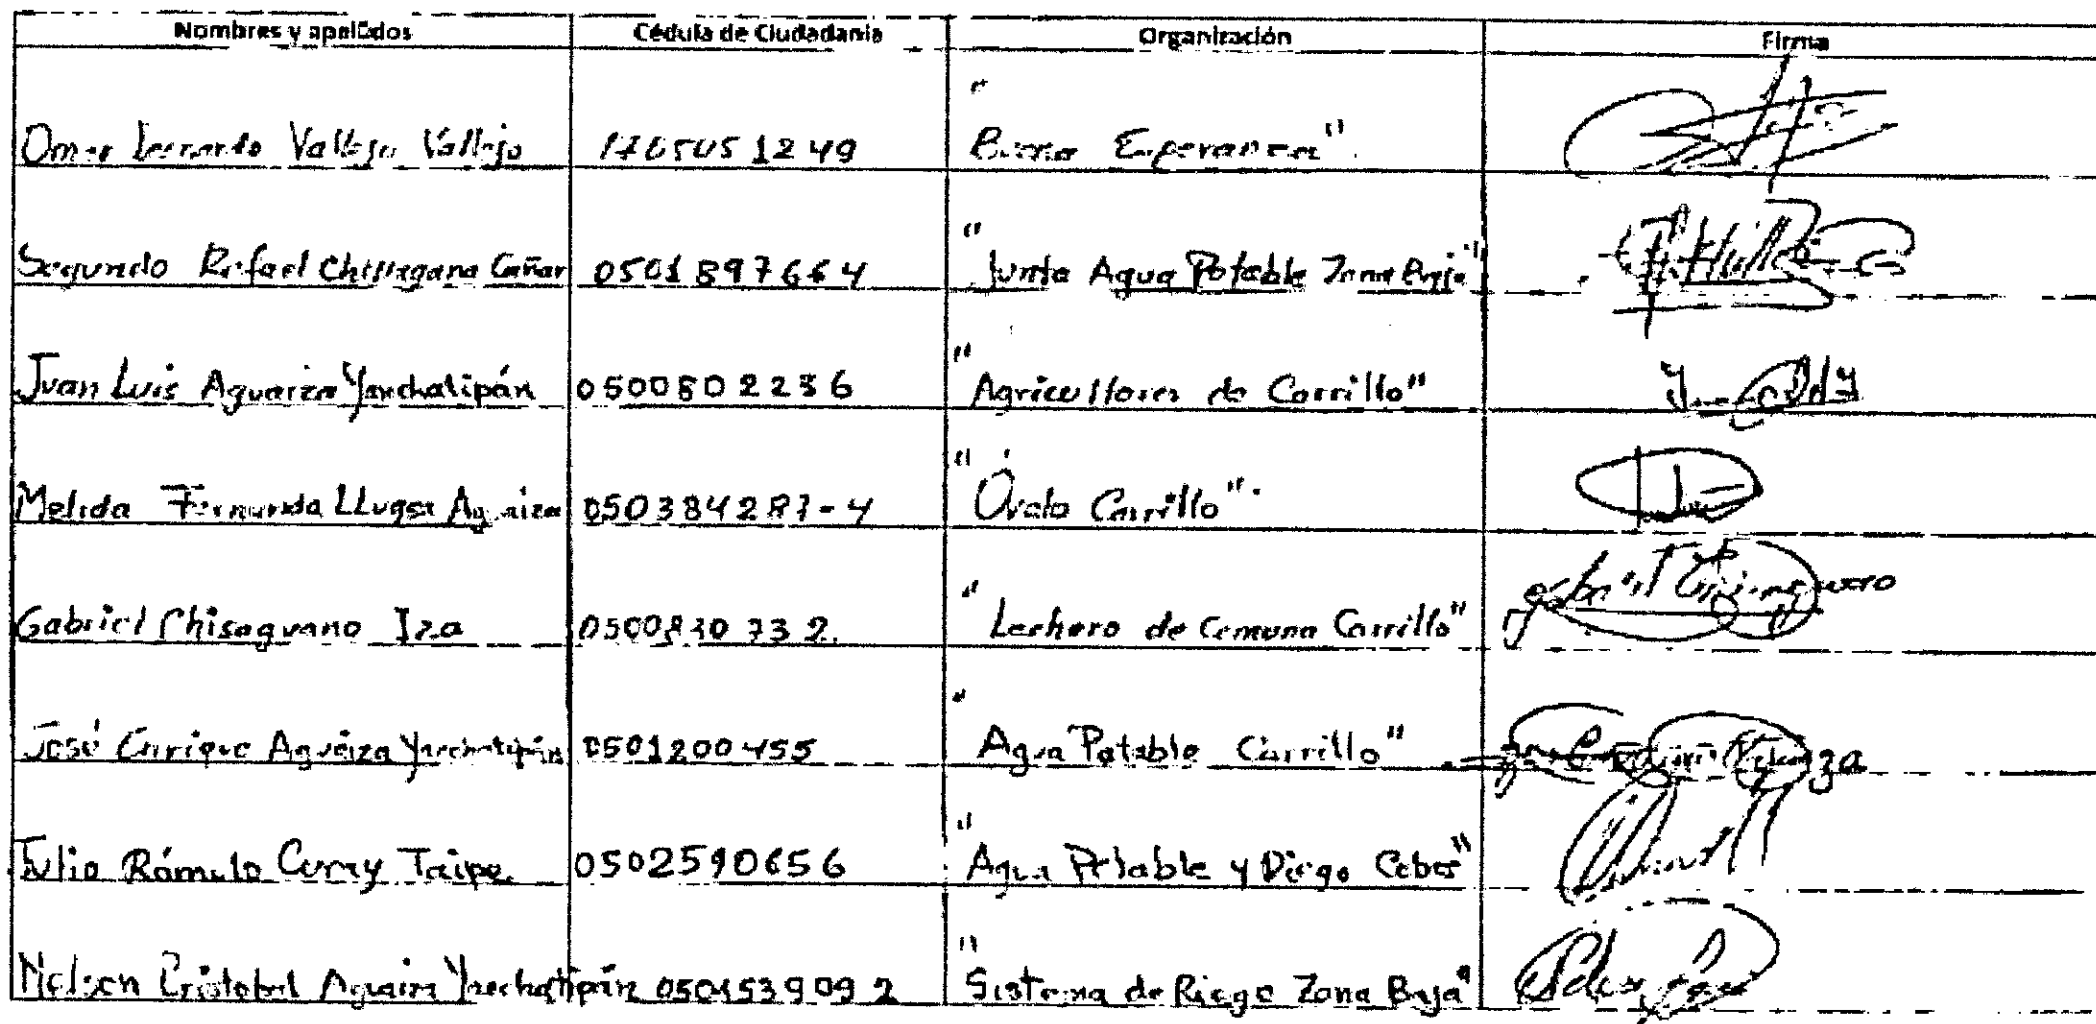 Nombres y apellidos Cédula de Ciudadanía Organización Firma
Omar Leonardo Vallejo Vallejo 1705051249 "Buena Esperanza".
Segundo Rafael Chisaguano Cañar 0501897664 "Junta Agua Potable Zona Baja"
Juan Luis Aguaiza Yanchatipán 0500802236 "Agricultores de Carrillo"
Melida Fernanda Lluga Aguaiza 050384287-4 "Óvalo Carrillo".
Gabriel Chisaguano Iza 0500830732. "Lechero de Comuna Carrillo"
José Enrique Aguaiza Yanchatipán 0501200455 "Agua Potable Carrillo"
Julio Rómulo Curay Taipe 0502590656 "Agua Potable y Diego Cobos"
Nelson Cristobal Aguaiza Yanchatipán 0501539092 "Sistema de Riego Zona Baja"